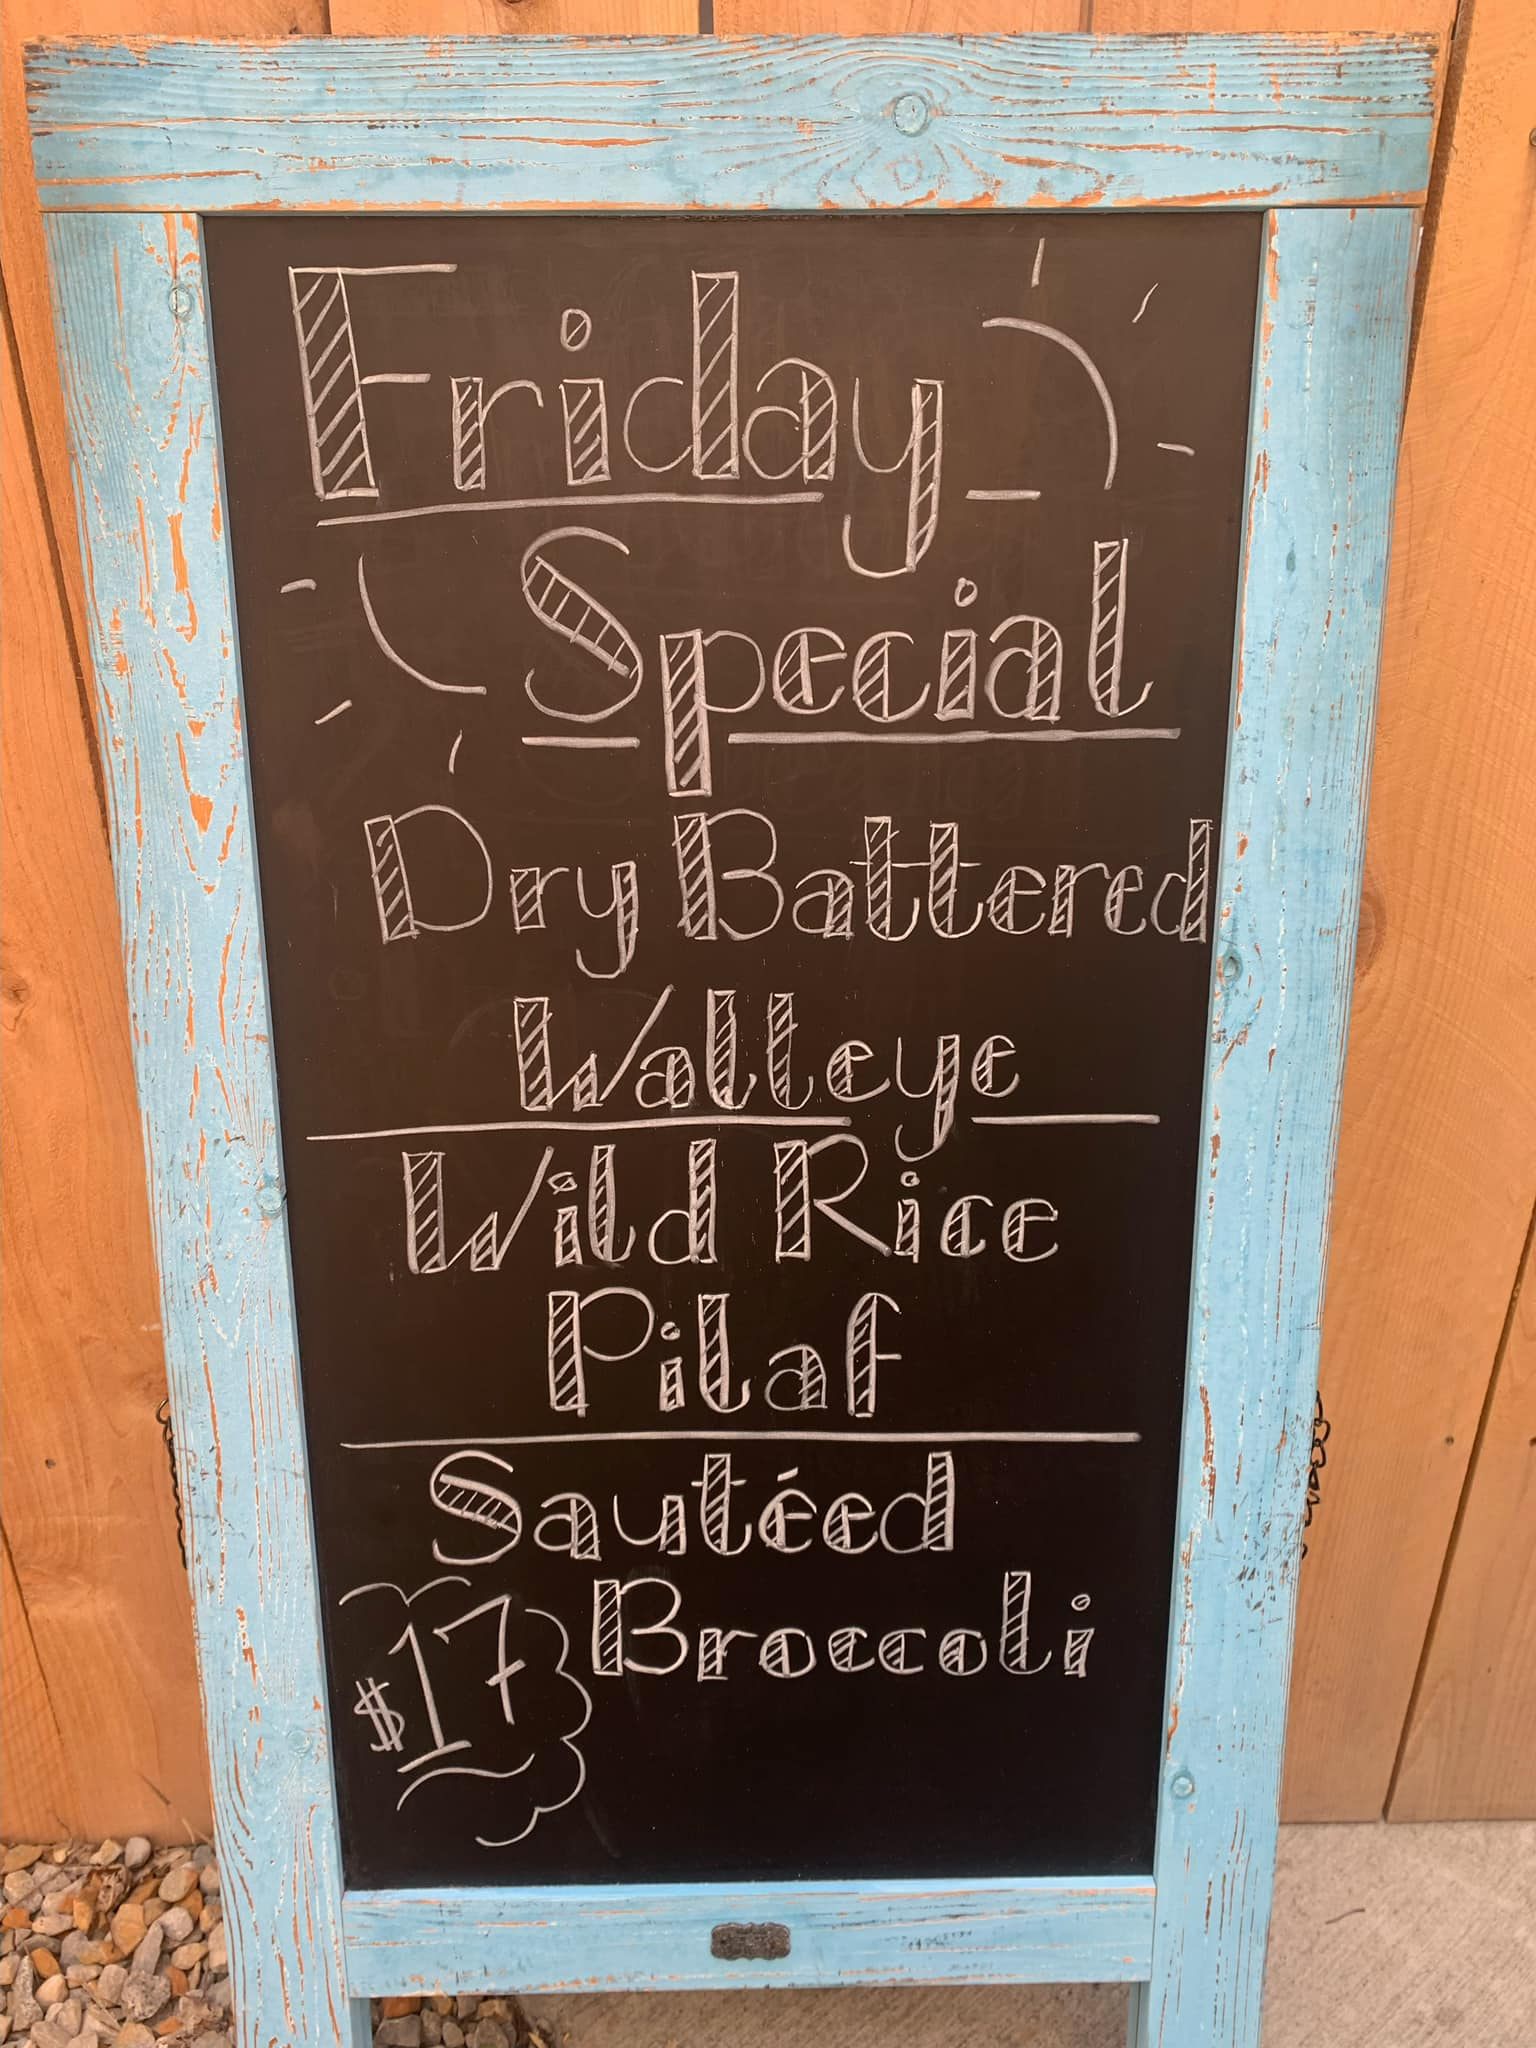 Friday
Special
Dry Battered
Walleye
Wild Rice
Pilaf
Sautéed
Broccoli
$17